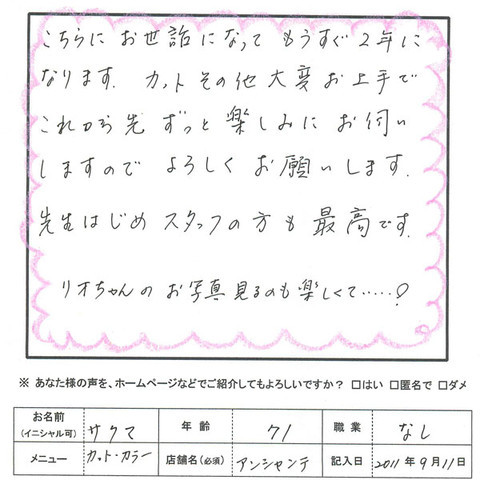 こちらに お世話になって もうすぐ 2年に
なります. カット その他 大変 お上手で
これから先 ずっと 楽しみに お伺い
しますので よろしく お願いします.
先生はじめ スタッフの方も 最高です.
リオちゃんの お写真見るのも 楽しくて‥‥‥?
※ あなた様の声を、ホームページなどでご紹介してもよろしいですか? □はい □匿名で □ダメ
お名前 (イニシャル可) サクマ 年 齢 71 職 業 なし
メニュー カット・カラー 店舗名(必須) アンシャンテ 記入日 2011年9月11日